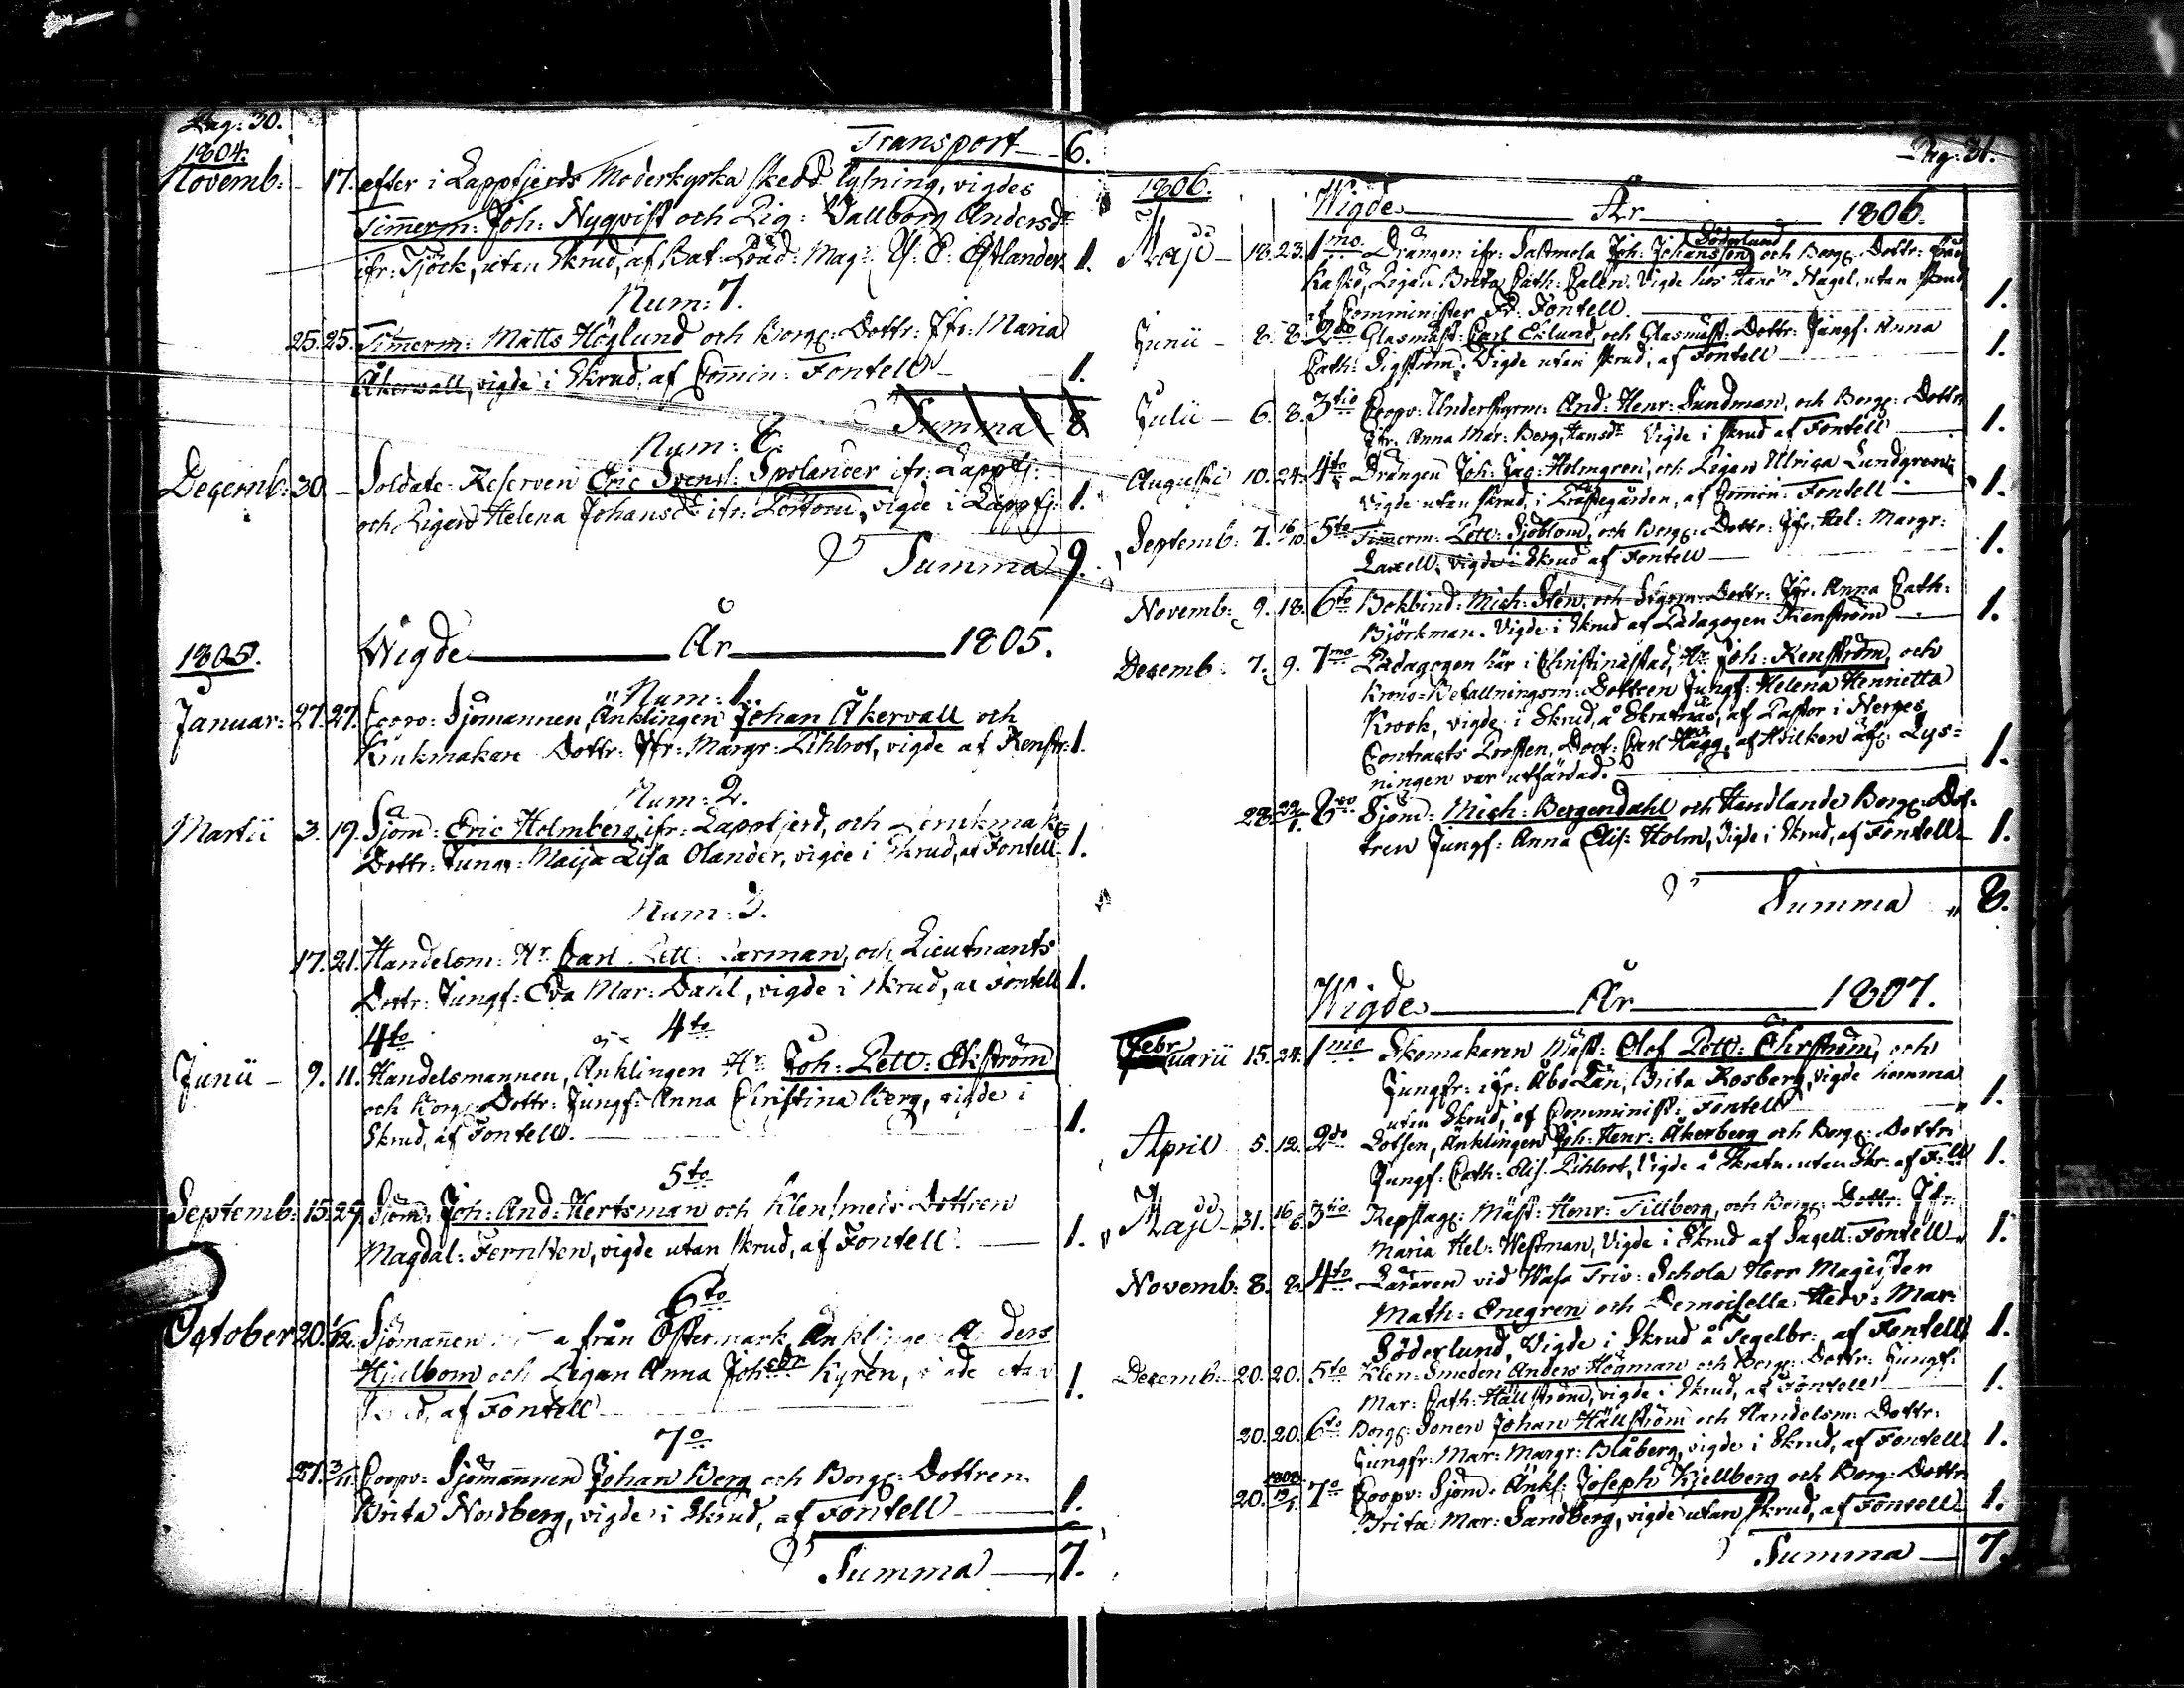 Pag: 30.
1804.
Transport 6.
Novemb: 17. efter i Lappfjerds Moderkyrka skedd lysning, vigdes
Timmerm: Joh: Nyqvist och Pig: Vallborg Andersdr
ifr: Tjöck, utan Skrud, af Bat: Pred: Mag: Östlander. 1.
Num: 7.
25. 25. Timmerm: Matts Höglund och Borg: Dottr: Jfr: Maria
Åkervall, vigde i Skrud, af Commin: Fontell 1.
Summa 8
Num: 8.
Decemb: 30 Soldate-Reserven Eric Svens: Spolander ifr: Lappfj:
och Pigan Helena Johansdr ifr: Pörtom, vigde i Lappfj: 1.
Summa 9.
1805. Wigde År 1805.
Num: 1.
Januar: 27. 27. Coopv: Sjömannen, Änklingen Johan Åkervall och
Krukmakare Dottr: Jfr: Margr: Pihlrot, vigde af Renstr: 1.
Num: 2.
Martii 3. 19. Sjöm: Eric Holmberg ifr: Lappfjerd, och Krukmak:
Dottr: Jungf: Maija Lisa Olander, vigde i Skrud, af Fontell 1.
Num: 3.
17. 21. Handelsm: Hr Carl Pett: Carman, och Lieutnants
Dottr: Jungf: Eva Mar: Dahl, vigde i skrud, af Fontell 1.
4to 4to
Junii 9. 11. Handelsmannen, Änklingen Hr Joh: Pett: Ekström
och Borg: Dottr: Jungf: Anna Christina Berg, vigde i
Skrud, af Fontell. 1.
5to
Septemb: 15. 29. Sjöm: Joh: And: Hertsman och Klensmeds Dottren
Magdal: Fernsten, vigde utan skrud, af Fontell. 1.
6to
October 20. 1/12. Sjömannen från Östermark Änklingen Anders
Hjulbom och Pigan Anna Johsdr Kyrén, vigde utan
Skrud, af Fontell 1.
7o
27. 3/11. Coopv: Sjömannen Johan Berg och Borg: Dottren
Brita Nordberg, vigde i Skrud, af Fontell 1.
Summa 7.
Pag: 31.
1806. Wigde År 1806.
Söderlund
Maji 18. 23. 1mo. Drängen ifr: Sastmola Joh: Johansson och Borg: Dottr: ifrån
Kaskö, Pigan Brita Cath: Calén. Vigde hos Hansm Nagel, utan skrud
af Comminister Fr: Fontell. 1.
Junii 8. 8. 2do Glasmäst: Carl Eklund och Glasmäst: Dottr: Jungf: Anna
Cath: Sigström. Vigde utan skrud, af Fontell 1.
Julii 6. 8. 3tio Coopv: Understyrm: And: Henr: Sundman, och Borg: Dottr:
Jfr: Anna Mar: Berg, Hansdr Vigde i skrud af Fontell 1.
Augusti 10. 24. 4to Drängen Joh: Jac: Holmgren, och Pigan Ulrica Lundgren,
vigde utan skrud, i Prästegården, af Commin: Fontell 1.
Septemb: 7. 16/10. 5to Timmerm: Pett: Sjöblom, och Borg: Dottr: Jfr: Hel: Margr:
Laxell, vigde i Skrud af Fontell 1.
Novemb: 9. 18. 6to Bokbind: Mich: Sten, och Styrm: Dottr: Jfr: Anna Cath:
Björkman. Vigde i Skrud af Pædagogen Renström 1.
Decemb: 7. 9. 7mo Pædagogen här i Christinæstad, Hr Joh: Renström, och
Krono-Befallningsm: Dottren Jungf: Helena Henrietta
Krook, vigde i Skrud, å Skratnäs, af Pastor i Nerpes,
Contracts Prosten, Doct: Carl Hägg, af hvilken äfv: Lys=
ningen var utfärdad. 1.
28. 29/1. 8vo Sjöm: Mich: Bergendahl och Handlande Borg: Dot=
tren Jungf: Anna Elis: Holm, Vigde i Skrud, af Fontell 1.
Summa 8.
Wigde År 1807.
Februarii 15. 24. 1mo Skomakaren Mäst: Olof Pett: Öhrström, och
Jungfr: ifr: Åbo Län, Brita Rosberg, vigde hemma
utan Skrud, af Comminist: Fontell 1.
April 5. 12. 2do Lotsen, Änklingen Joh: Henr: Åkerberg och Borg: Dottr:
Jungf: Cath: Elis: Pihlrot, Vigde å Skratn: utan Skr: af F:ll 1.
Maji 31. 16/6. 3tio Repslag: Mäst: Henr: Tillberg, och Borg: Dottr: Jfr:
Maria Hel: Westman, Vigde i Skrud af Sacell: Fontell 1.
Novemb: 8. 8. 4to Läraren vid Wasa Triv: Schola Herr Magister
Math: Enegren och Demoiselle Hedv: Mar:
Söderlund, Vigde i Skrud å Tegelbr: af Fontell 1.
Decemb: 20. 20. 5to Klen-Smeden Anders Högman och Borg: Dottr: Jungf:
Mar: Cath: Hällström, vigde i Skrud, af Fontell 1.
20. 20. 6to Borg: Sonen Johan Hällström och Handelsm: Dottr:
Jungfr: Mar: Margr: Blåberg, vigde i Skrud, af Fontell 1.
20. 1808. 19/1. 7o Coopv: Sjöm: Änkl: Joseph Kjellberg och Borg: Dottr:
Brita Mar: Sandberg, vigde utan skrud, af Fontell 1.
Summa 7.